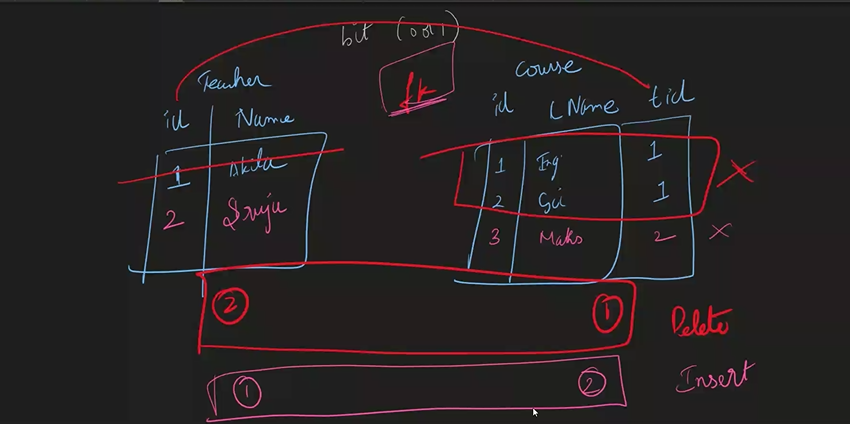 bit (0or1)
fk
Teacher
id Name
1 Akila
2 Sruju
Course
id CName tid
1 Eng 1
2 Sci 1
3 Maks 2
② ① Delete
① ② Insert